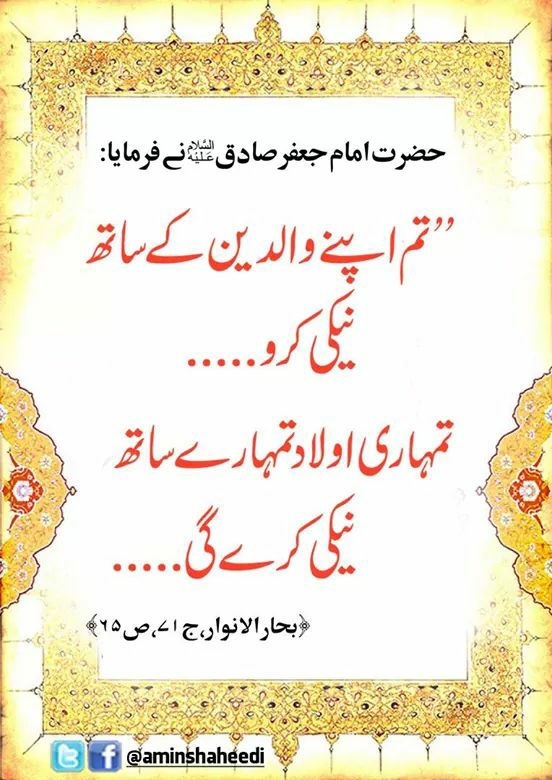 حضرت امام جعفر صادق علیہ السلام نے فرمایا:
”تم اپنے والدین کے ساتھ
نیکی کرو.....
تمہاری اولاد تمہارے ساتھ
نیکی کرے گی.....
﴿بحار الانوار، ج ۷۱، ص ۶۵﴾
@aminshaheedi